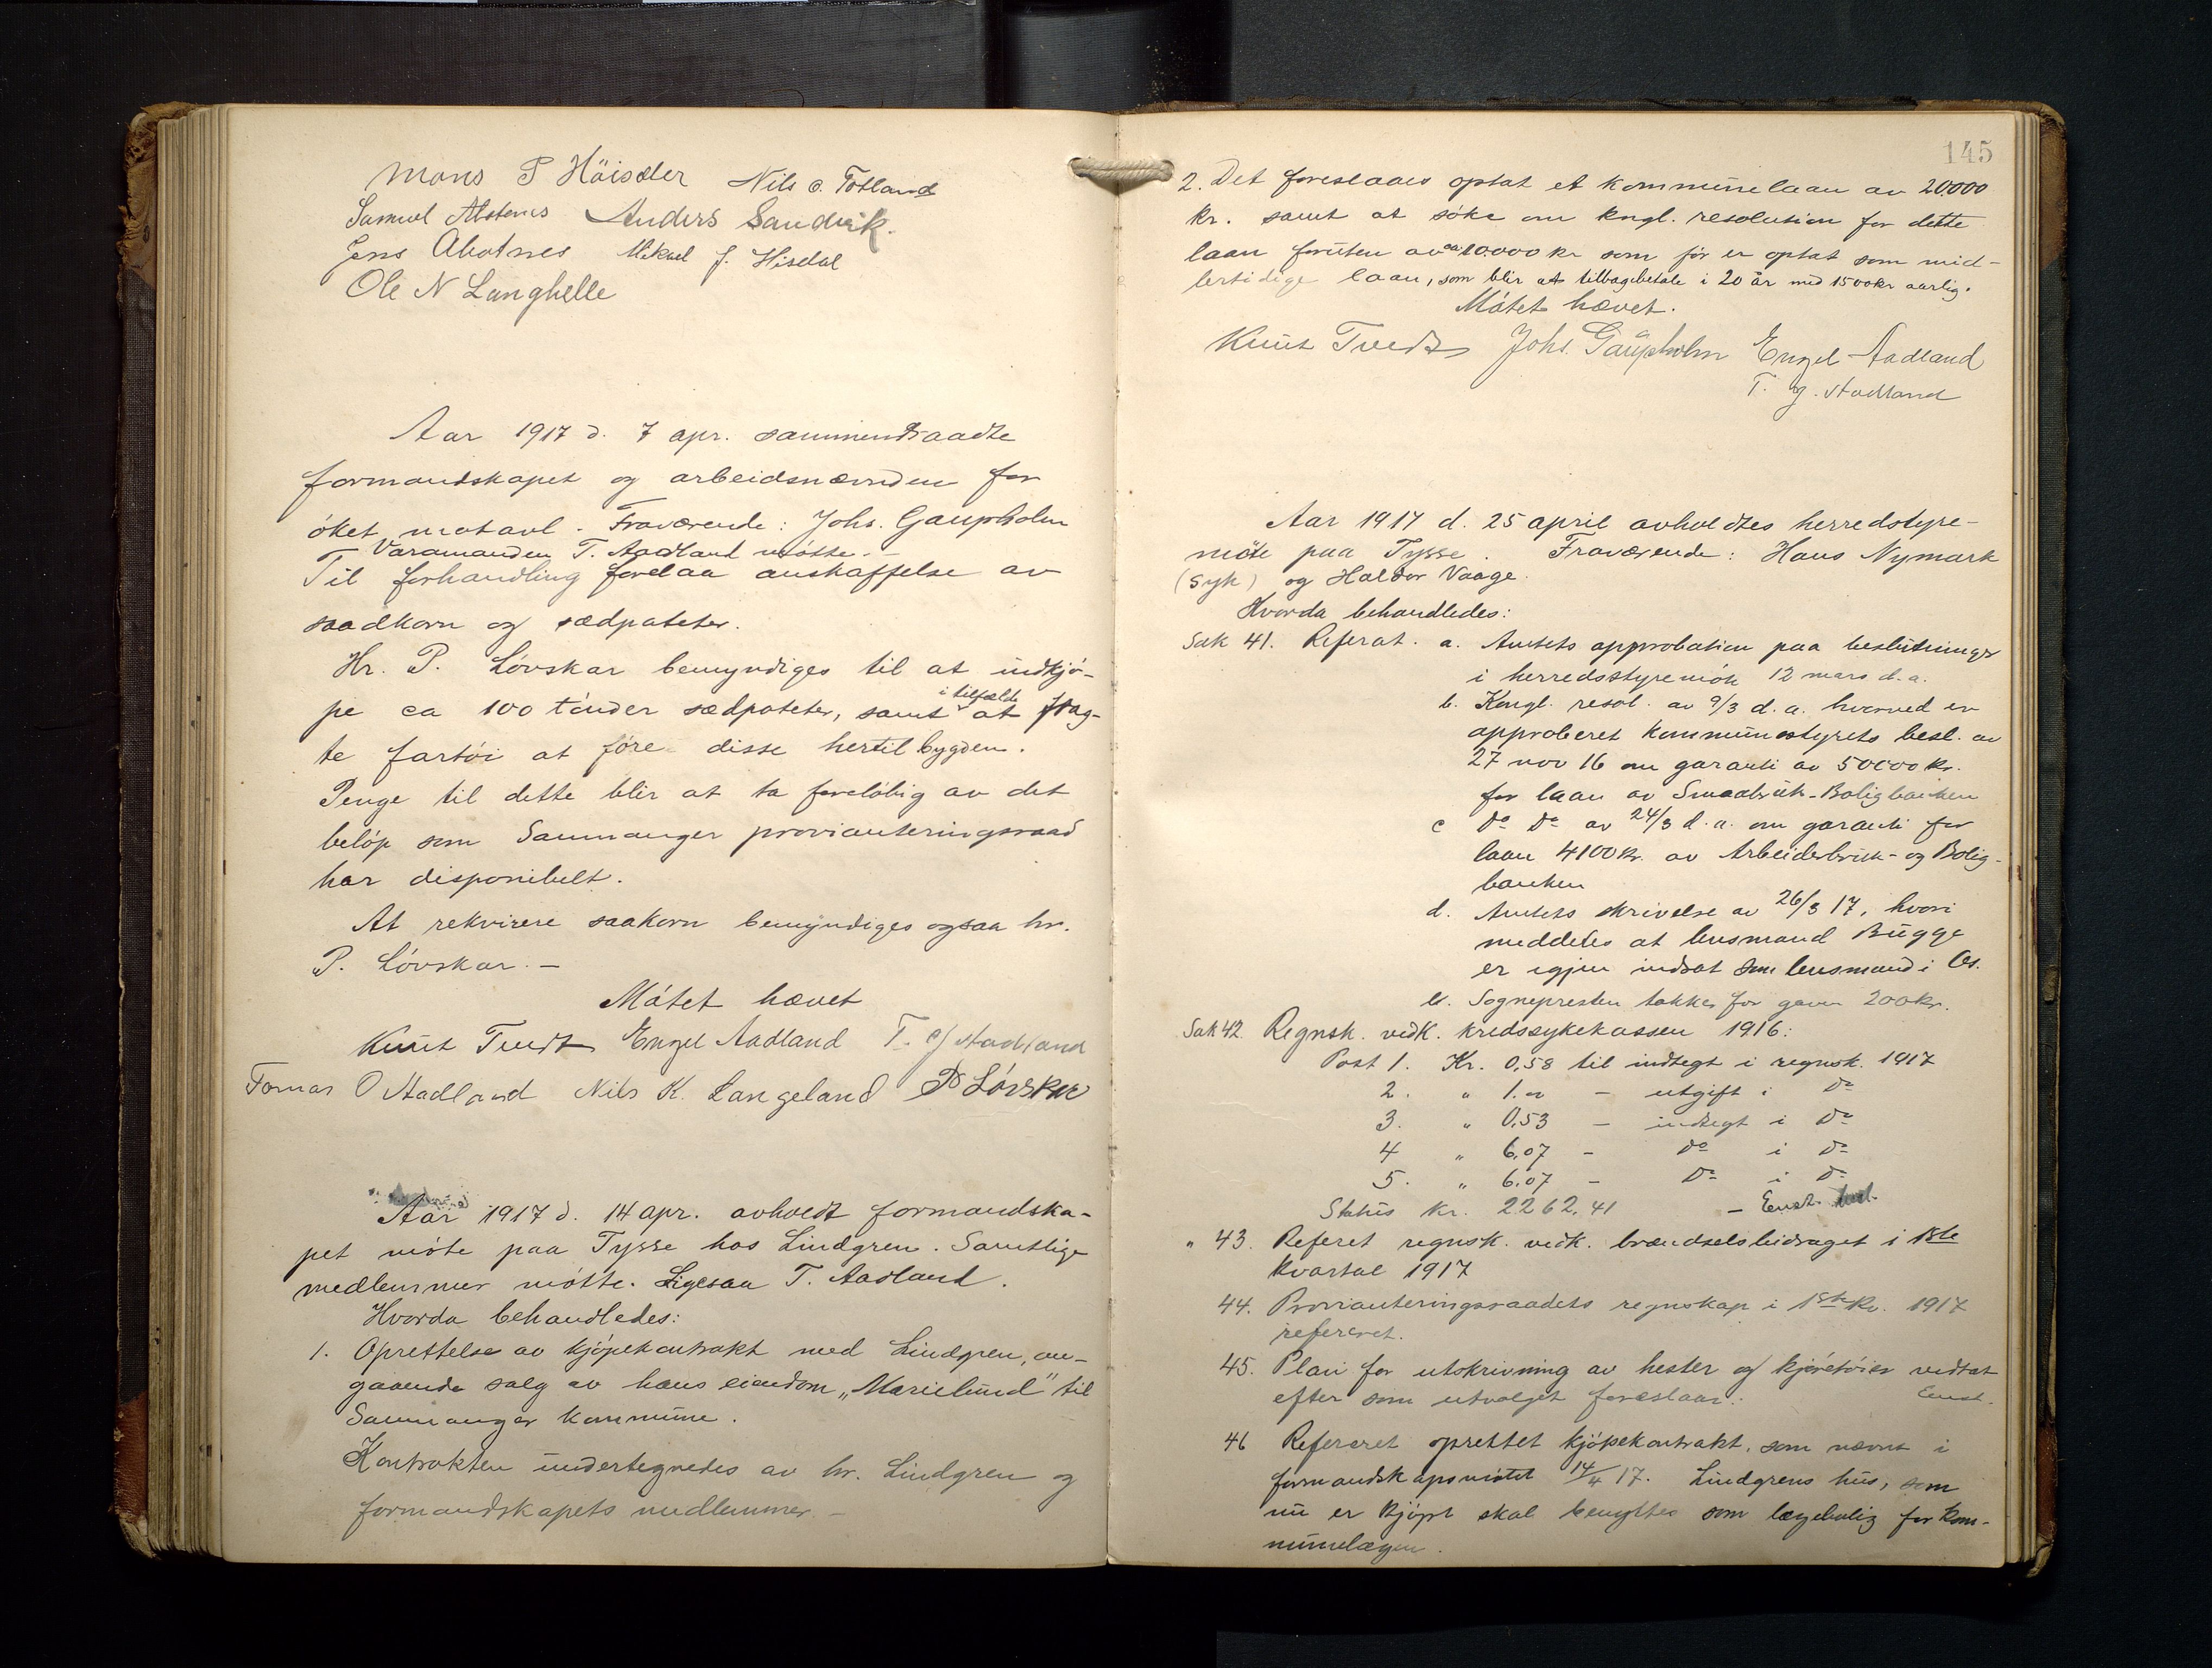 Mons P Höisæter Nils O. Totland
Samuel Alstenes Anders Sandvik.
Jens Ahotnes Mikael J. Hisdal
Ole N Langhelle
Aar 1917 d. 7 apr. sammentraadte
formandskapet og arbeidsnævnden for
öket matavl. Fraværende: Johs. Gaupholm
Varamanden T. Aadland mötte. –
Til forhandling forelaa anskaffelse av
saadkorn og sædpoteter.
Hr. P. Lövskar bemyndiges til at indkjö-
pe ca 100 tönder sædpoteter, samt i tilfælde at frag-
te fartöi at före disse hertil bygden.
Penge til dette blir at ta forelöbig av det
belöp som Samnanger provianteringsraad
har disponibelt.
At rekvirere saakorn bemyndiges ogsaa hr.
P. Lövskar. –
Mötet hævet
Knut Tvedt Engel Aadland T. G. Aadland
Tomas O Aadland Nils K. Langeland P Lövskar
Aar 1917 d. 14 apr. avholdt formandska-
pet möte paa Tysse hos Lindgren. Samtlige
medlemmer mötte. Ligesaa T. Aadland.
Hvorda behandledes:
1. Oprettelse av kjöpekontrakt med Lindgren, an-
gaaende salg av hans eiendom „Marielund" til
Samnanger kommune.
Kontrakten undertegnedes av hr. Lindgren og
formandskapets medlemmer. –
145
2. Det foreslaaes optat et kommunelaan av 20.000
kr. samt at söke om kngl. resolution for dette
laan foruten av ca 10.000 kr som för er optat som mid-
lertidige laan, som blir at tilbagebetale i 20 år med 1500 kr aarlig.
Mötet hævet.
Knut Tvedt Johs. Gaupholm Engel Aadland
T. G. Aadland
Aar 1917 d. 25 april avholdtes herredstyre-
möte paa Tysse. Fraværende: Hans Nymark
(syk) og Haldor Vaage.
Hvorda behandledes:
Sak 41. Referat. a. Amtets approbation paa beslutninger
i herredsstyremöte 12 mars d.a.
b. Kongl. resol. av 9/3 d.a. hvorved er
approberet kommunestyrets besl. av
27 nov 16 om garanti av 50000 kr.
for laan av Smaabruk-Boligbanken
c Do Do av 24/3 d.a. om garanti for
laan 4100 kr. av Arbeiderbruk- og Bolig-
banken
d. Amtets skrivelse av 26/3 17, hvori
meddeles at lensmand Bugge
er igjen indsat som lensmand i Os.
e. Sognepresten takker for gaven 200 kr.
Sak 42 Regnsk. vedk. kredssykekassen 1916:
Post 1. Kr. 0,58 til indtegt i regnsk. 1917
2. " 1.00 – utgift i Do
3. " 0,53 – indtegt i Do
4 " 6,07 – Do i Do
5. " 6.07 – Do i Do
Status kr. 2262,41 – Enst.
" 43. Referet regnsk. vedk. brændselsbidraget i 1ste
kvartal 1917
44. Provianteringsraadets regnskap i 1ste kv. 1917
referert.
45. Plan for utskrivning av hester og kjöretöier vedtat
efter som utvalget foreslaar. Enst.
46 Refereret oprettet kjöpekontrakt, som nævnt i
formandskapsmötet 14/4 17. Lindgrens hus, som
nu er kjöpt skal benyttes som lægebolig for kom-
munelægen.